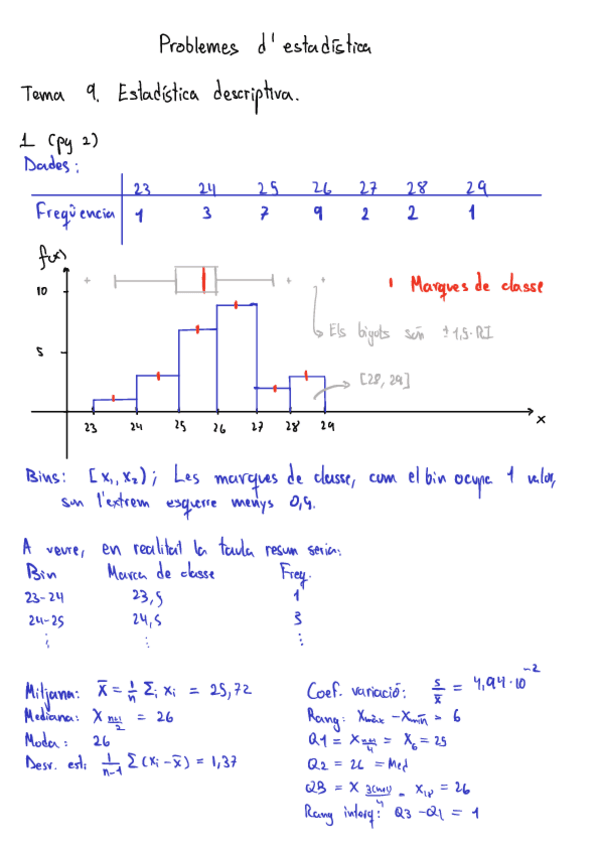 Problemes d'estadística
Tema 9. Estadística descriptiva.
1 (pg 2)
Dades:
23 24 25 26 27 28 29
Freqüencia 1 3 7 9 2 2 1
f(x)
10
5
Marques de classe
Els bigots són ±1,5·RI
[28, 29]
23 24 25 26 27 28 29
x
Bins: [x₁, x₂); Les marques de classe, com el bin ocupa 1 valor,
son l'extrem esquerre menys 0,5.
A veure, en realitat la taula resum seria:
Bin Marca de classe Freq.
23-24 23,5 1
24-25 24,5 3
⋮ ⋮ ⋮
Mitjana: x̄ = 1/n Σᵢ xᵢ = 25,72
Mediana: X (n+1)/2 = 26
Moda: 26
Desv. est: 1/(n-1) Σ(xᵢ - x̄) = 1,37
Coef. variació: s/x̄ = 4,94·10⁻²
Rang: xmàx - xmín = 6
Q1 = X (n+1)/4 = X₆ = 25
Q2 = 26 = Med
Q3 = X 3(n+1)/4 = X₁₈ = 26
Rang interq: Q3 - Q1 = 1